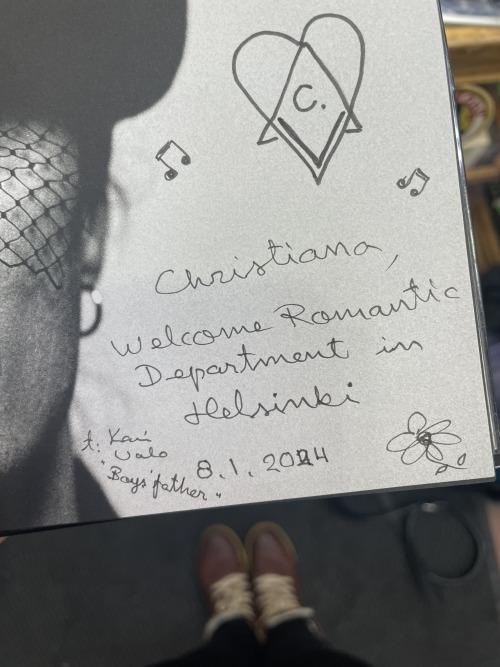 C.
Christiana,
Welcome Romantic
Department in
Helsinki
t: Kari
Valo
"Boys' father"
8.1.2024